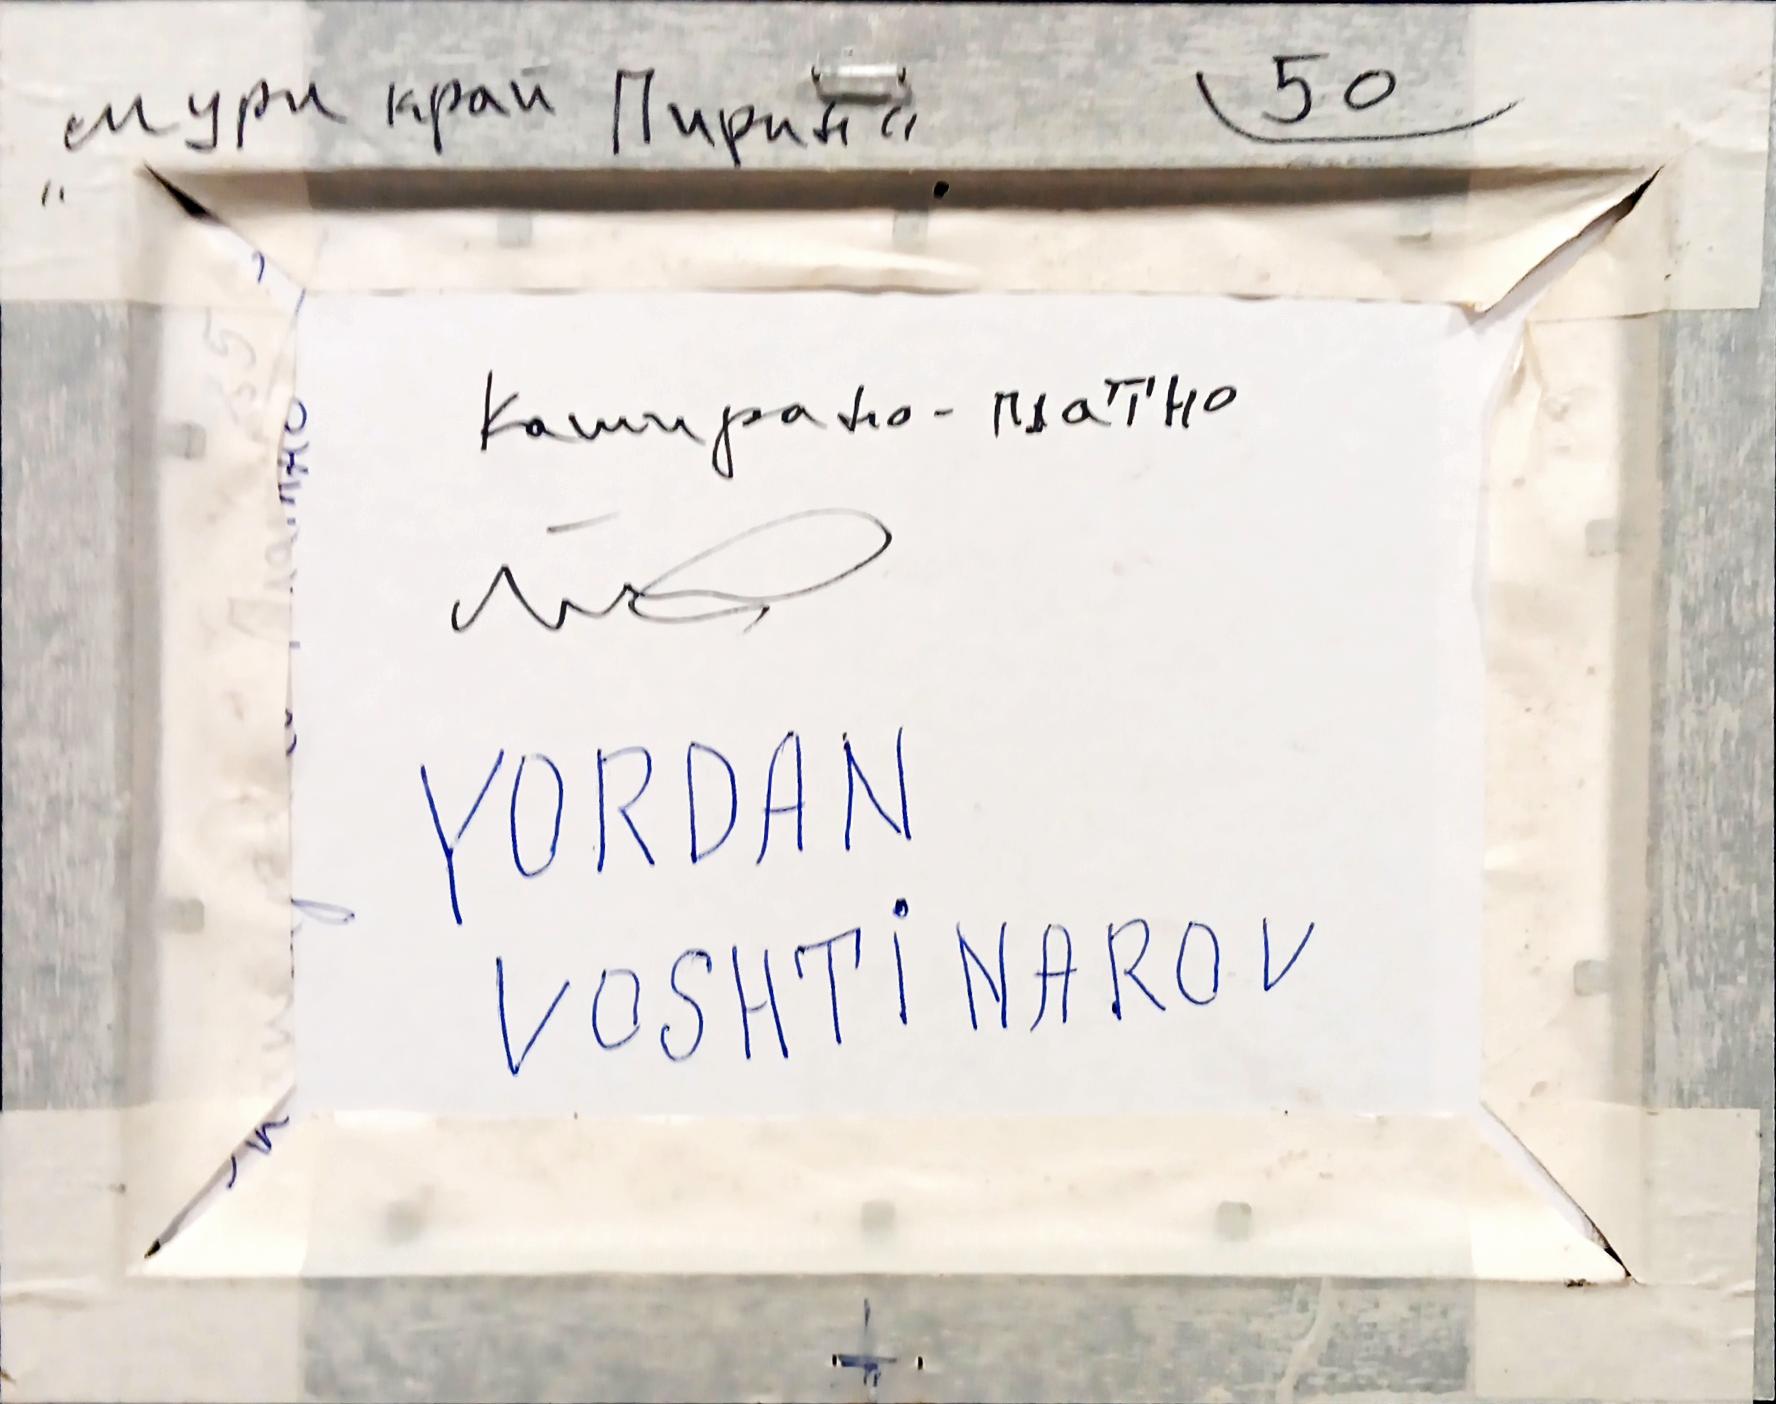 "Мури край Пирин"
50
Каширано - платно
YORDAN
VOSHTINAROV